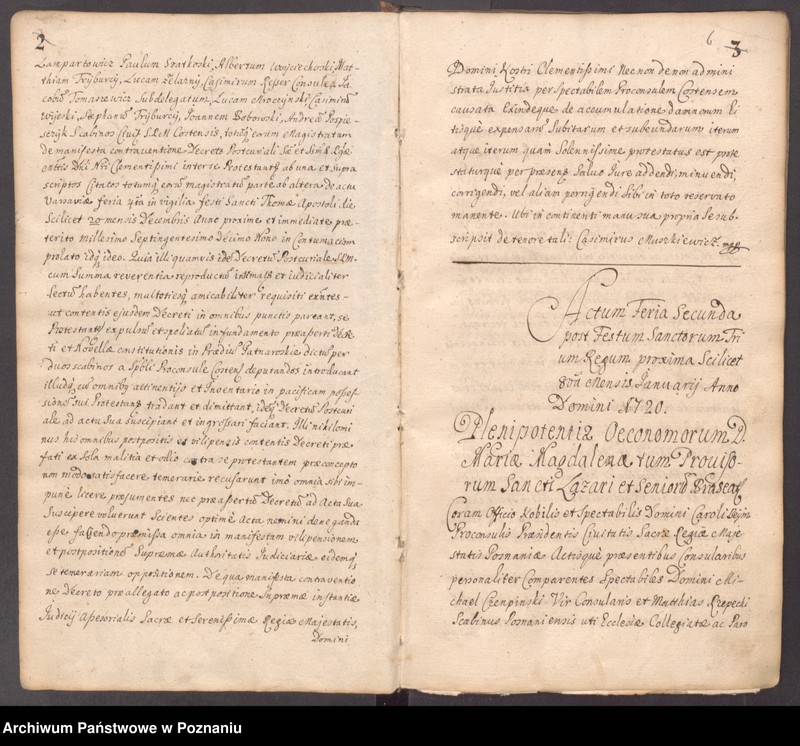 2
Lampartowicz Paulum Szatkoski, Albertum Woyciechoski, Mat-
thiam Fryburcij, Lucam Zelazny, Casimirum Keszer Consules Ja
Tomaszewicz Subdelegatum, Lucam Mroczynski, Casimirũ
Wijski, Stephanũ Fryburcij, Joannem Boboroski, Andreã Pospie-
szczyk Scabinos Civit S.R.M Costensis, totũq̃ eorum Magistratum
de manifesta contraventione Decreto Postcuriali
Clementissimi interse Protestantẽ ab una et supra
scriptos Citatos totumq̃ magistratũ parte ab altera de actu
Varsaviæ feria in vigilia festi Sancti Thomæ Apostoli die
Scilicet 20 mensis Decembris Anno proxime et immediate præ-
terito Millesimo Septingentesimo Decimo Nono in Contumaciam
prolato ideo. Quia illi quamvis Decretũ Postcuriale
cum Summa reverentia reproductũ et iudicialiter
Lectũ habentes, multotiesq̃ amicabiliter requisiti
ut contentis ejusdem Decreti in omnibus punctis pareant, se
Protestantẽ expulsũ et spoliatũ in fundamento præaperti
ti et Novellæ constitutionis in Prædiũ Patnaroskie dictũ per
duos scabinos a Proconsule Costen deputandos introducant
illudq̃ cũ omnibq attinentijs et Inventario in pacificam posses-
sionẽ sui Protestantẽ tradant et dimittant, Decretũ Postcuri
ale ad actu Sua Suscipiant et ingrossari faciant. Illi nihilomi
nus his omnibus postpositis et vilipensis contentis Decreti præ-
fati ex sola malitia et odio contra se protestantem præconcepto
non modo satisfacere temerarie recusarunt imo omnia sibi im-
pune licere præsumentes nec præassertũ Decretũ ad Acta Sua
Suscipere voluerunt Scientes optimè Acta nemini deneganda
esse faciendo præmissa omnia in manifestam vilipensionem
et postpositionẽ Supremæ Authoritatis Judiciariæ eidemq̃
se temerariam oppositionem. De qua manifesta contraventio
ne Decreto præallegato ac postpositione Supremæ instantiæ
Judicij Assessorialis Sacræ et Serenissimæ Regiæ Majestatis,
Domini
6
3
Domini Nostri Clementissimi Necnon de non admini
strata Justitia per Spectabilem Proconsulem Costensem
causata Exindeque de accumulatione damnorum li
titisquè expensarũ Subitarum et subeundarum iterum
atque iterum quam Solennissime protestatus est prote
staturquè per præsens, Salvo Jure addendi, minuendi,
corrigendi, vel aliam porrigendi Sibi in toto reservato
manente. Ubi in continenti manu sua propria se sub-
scripsit de tenore tali: Casimirus Muszkiewicz mpp
Actum Feria Secunda
post Festum Sanctorum Tri
um Regum proxima Scilicet
8va Mensis Januarij Anno
Domini 1720.
Plenipotentia Oeconomorum D.
Mariæ Magdalenæ tum Proviso-
rum Sancti Lazari et Seniorũ
Coram Officio Nobilis et Spectabilis Domini Caroli
Proconsulis Præsidentis Civitatis Sacræ Regiæ Maje
statis Posnaniæ Actisquè præsentibus Consularibus
personaliter Comparentes Spectabiles Domini Mi-
chael Czenpinski Vir Consularis et Matthias Rzepecki
Scabinus Posnaniensis uti Ecclesiæ Collegiatæ ac Paro
Archiwum Państwowe w Poznaniu